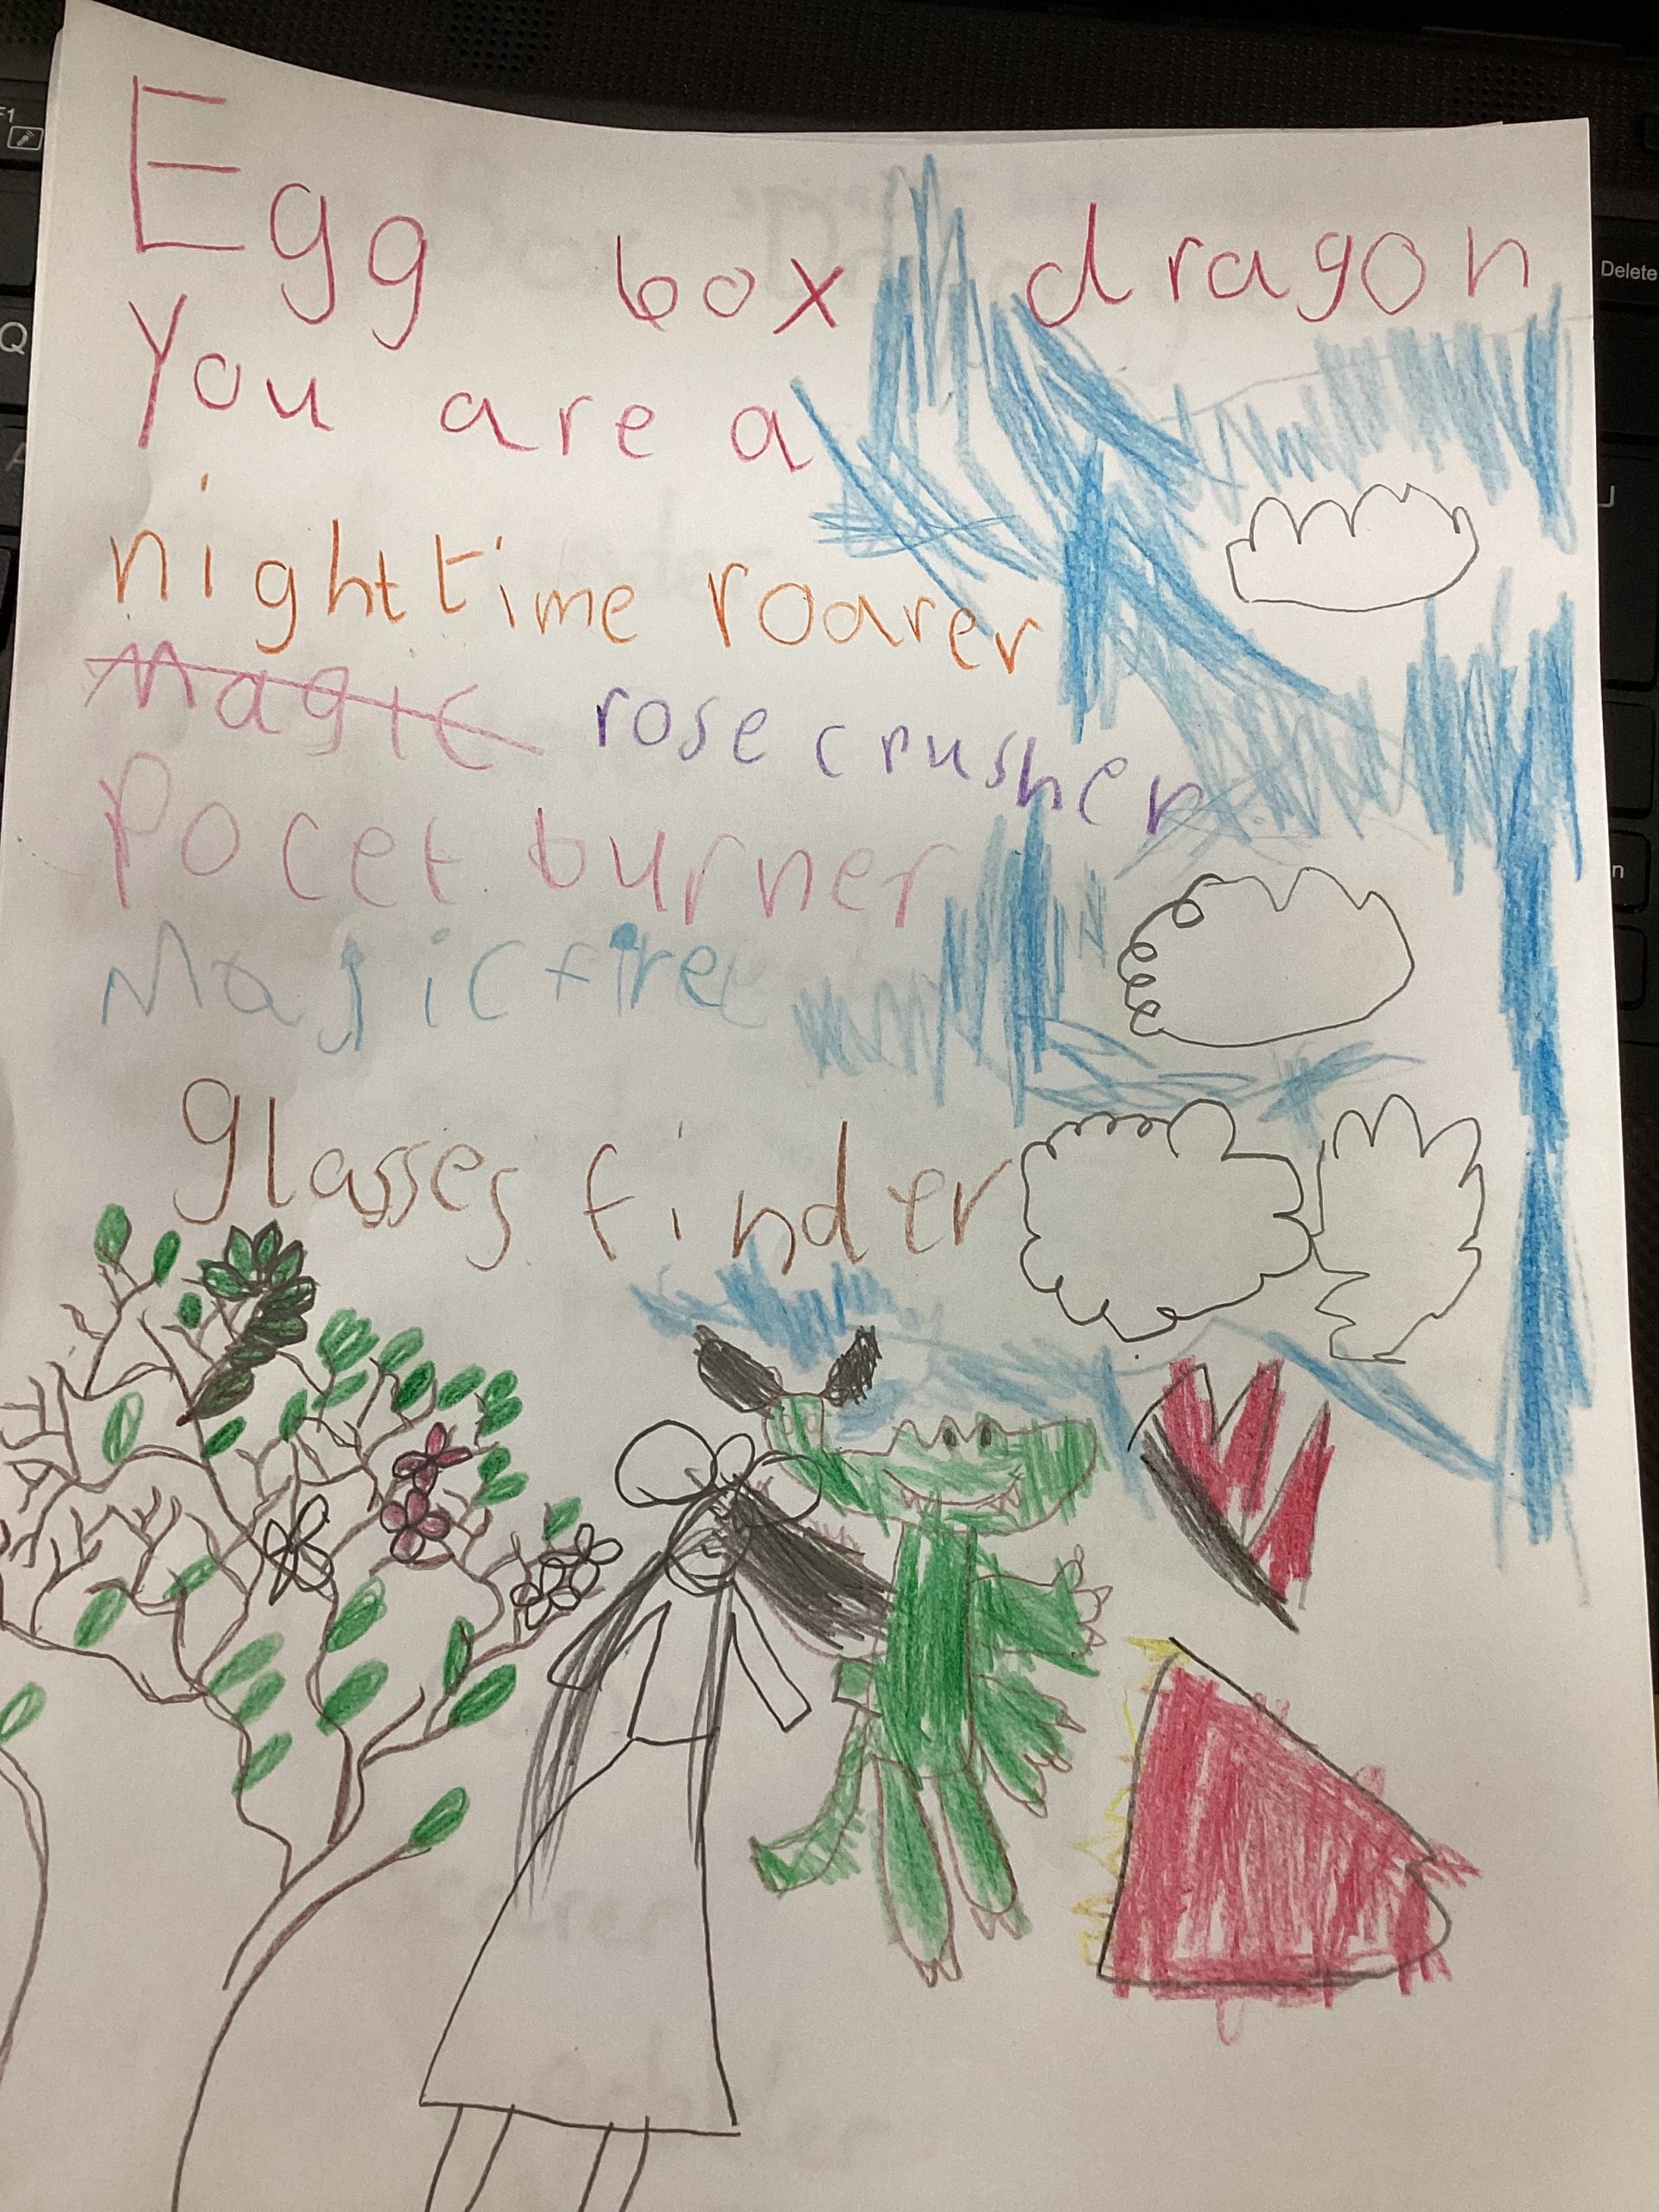 Egg box dragon
You are a
nighttime roarer
Magic rose crusher
Pocet burner
Majic fire
glasses finder
F1
Q
A
Delete
J
n